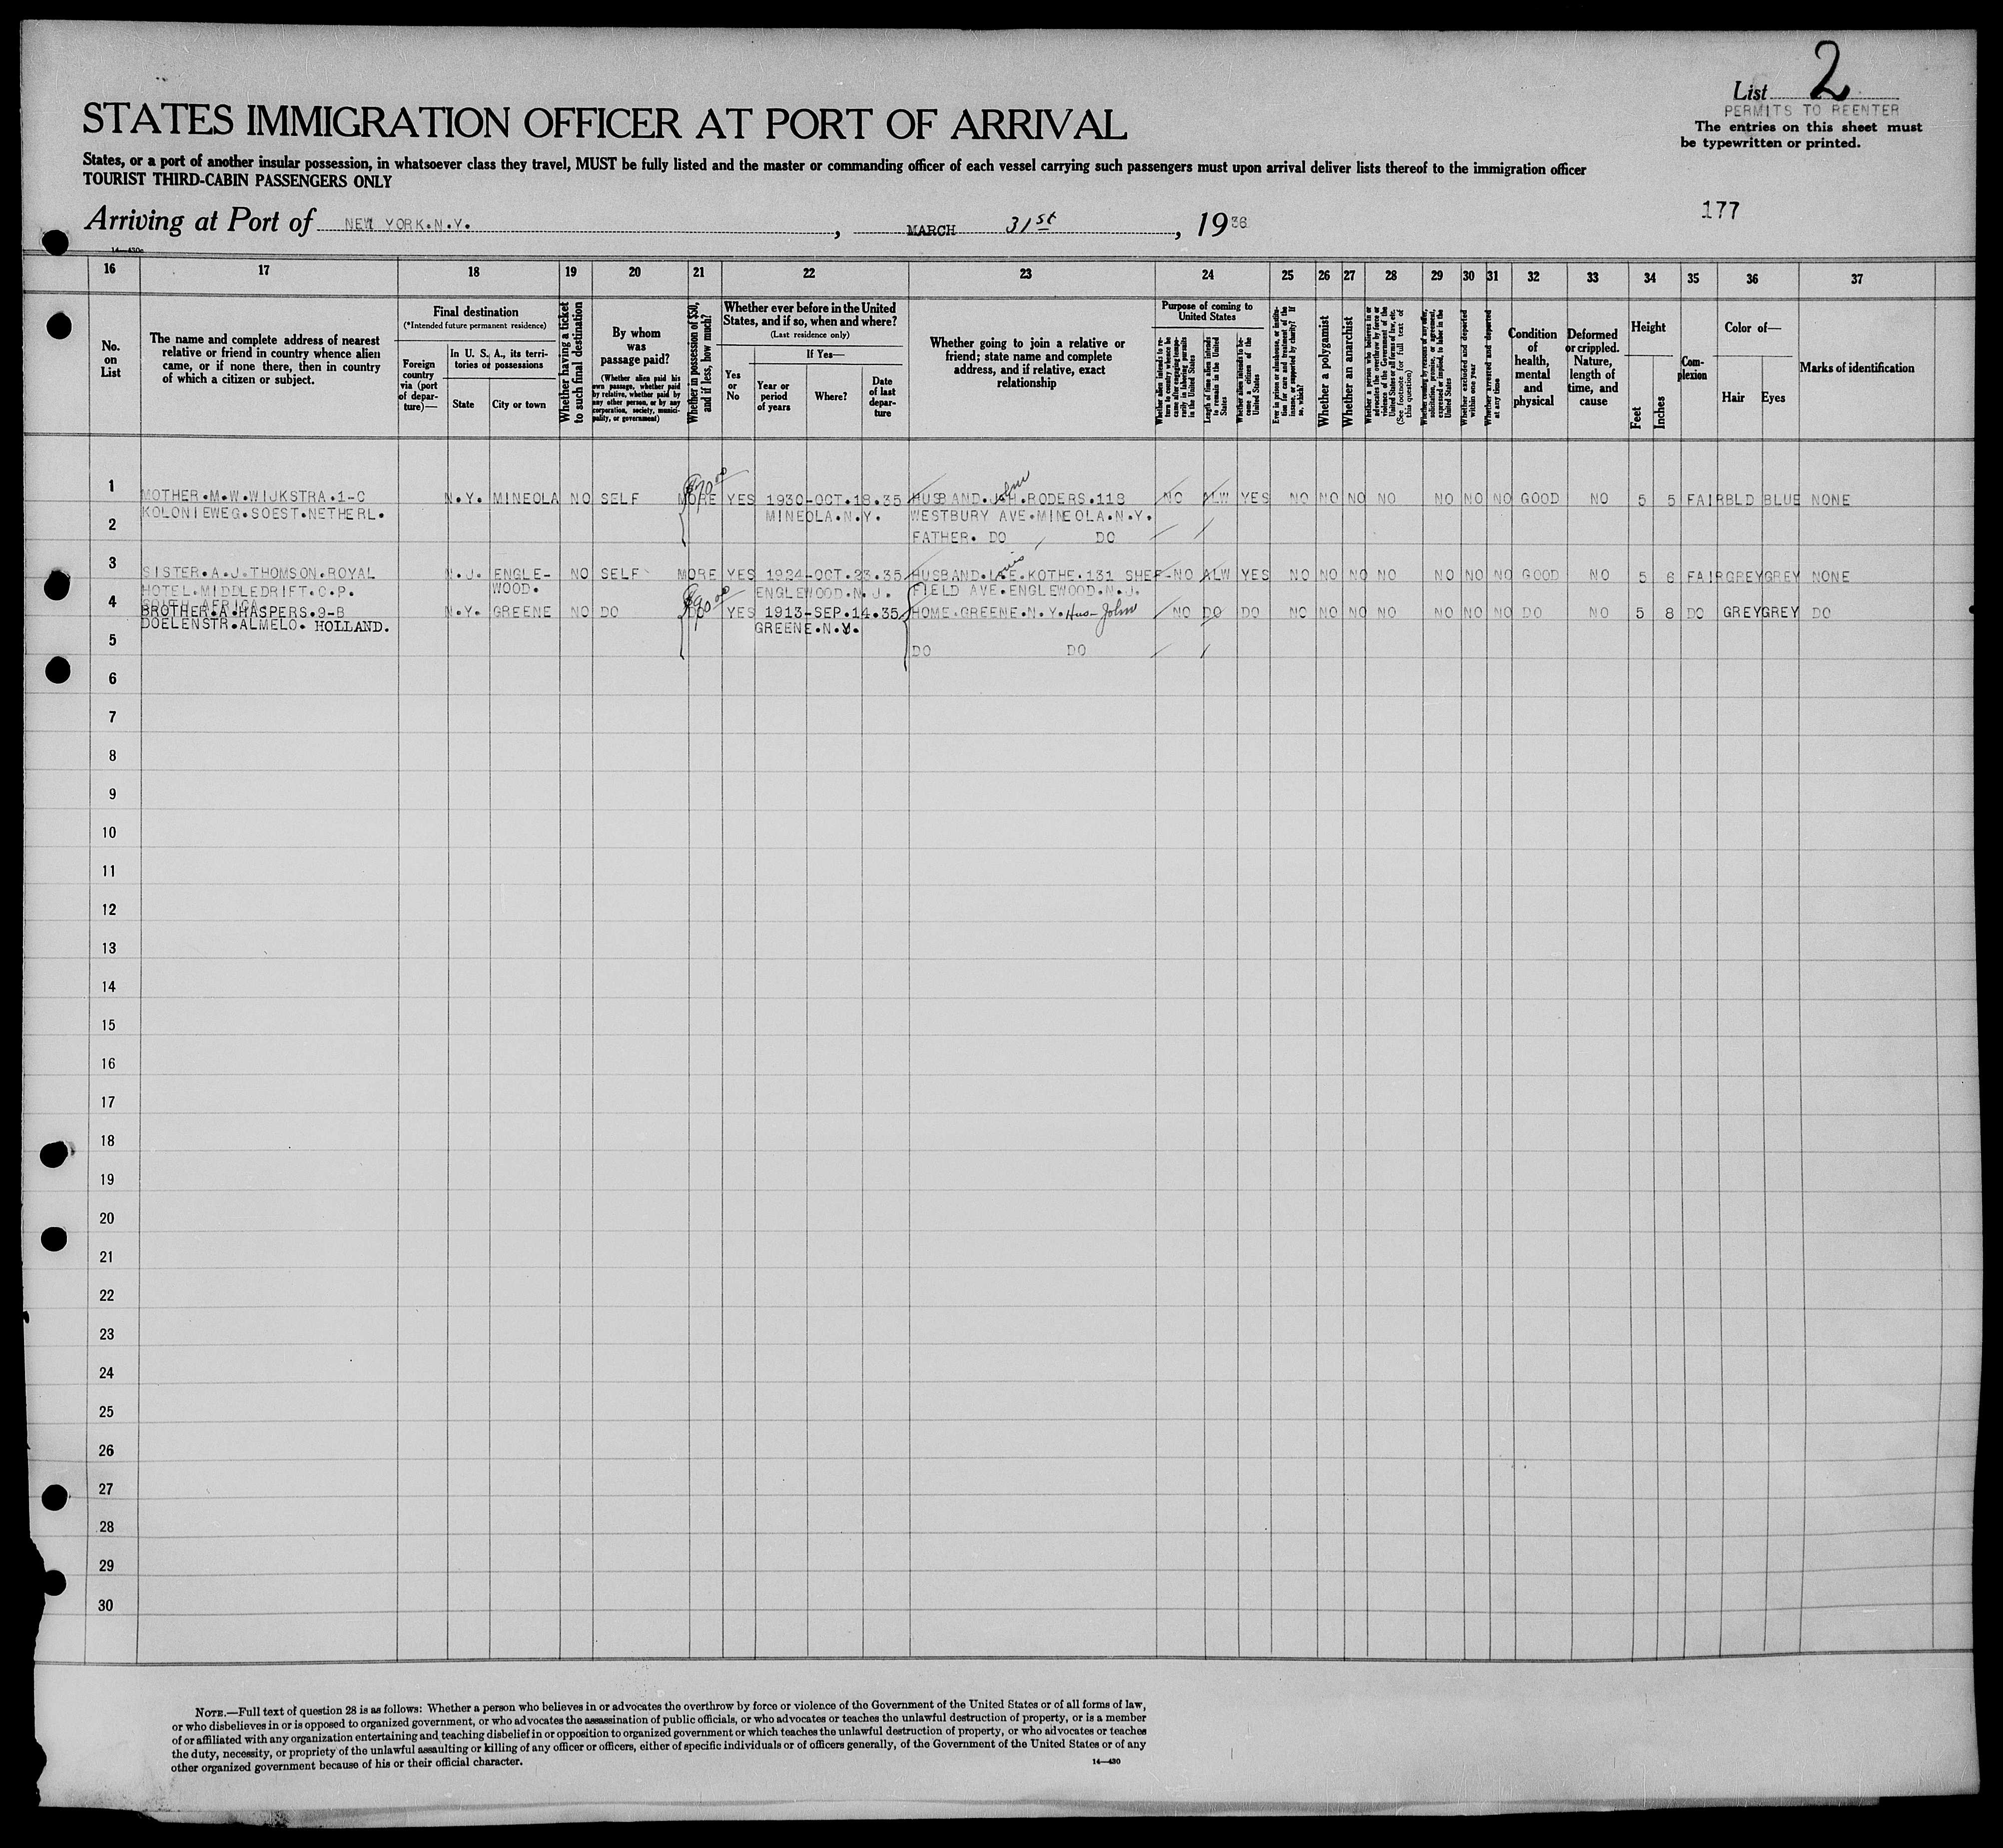 List 2
PERMITS TO REENTER
The entries on this sheet must
be typewritten or printed.
STATES IMMIGRATION OFFICER AT PORT OF ARRIVAL
States, or a port of another insular possession, in whatsoever class they travel, MUST be fully listed and the master or commanding officer of each vessel carrying such passengers must upon arrival deliver lists thereof to the immigration officer
TOURIST THIRD-CABIN PASSENGERS ONLY
177
Arriving at Port of NEW YORK.N.Y. , MARCH 31st , 1936
16 17 18 19 20 21 22 23 24 25 26 27 28 29 30 31 32 33 34 35 36 37
No. on List
The name and complete address of nearest
relative or friend in country whence alien
came, or if none there, then in country
of which a citizen or subject.
Final destination
(*Intended future permanent residence)
Foreign country via (port of departure)—
In U. S. A., its territories or possessions
State
City or town
Whether having a ticket to such final destination
By whom was passage paid?
(Whether alien paid his own passage, whether paid by relative, whether paid by any other person, or by any corporation, society, municipality, or government)
Whether in possession of $50, and if less, how much?
Whether ever before in the United States, and if so, when and where?
(Last residence only)
Yes or No
If Yes—
Year or period of years
Where?
Date of last departure
Whether going to join a relative or
friend; state name and complete
address, and if relative, exact
relationship
Purpose of coming to United States
Whether alien intends to return to country whence he came after engaging temporarily in laboring pursuits in the United States
Length of time alien intends to remain in the United States
Whether alien intends to become a citizen of the United States
Ever in prison or almshouse, or institution for care and treatment of the insane, or supported by charity? If so, which?
Whether a polygamist
Whether an anarchist
Whether a person who believes in or advocates the overthrow by force or violence of the Government of the United States or all forms of law, etc. (See footnote for full text of this question)
Whether coming by reasons of any offer, solicitation, promise, or agreement, expressed or implied, to labor in the United States
Whether excluded and deported within one year
Whether arrested and deported at any time
Condition of health, mental and physical
Deformed or crippled. Nature, length of time, and cause
Height
Feet
Inches
Complexion
Color of—
Hair
Eyes
Marks of identification
1 MOTHER.M.W.WIJKSTRA.1-C N.Y. MINEOLA NO SELF $70.00 MORE YES 1930-OCT.18.35 HUSBAND.J.H.RODERS.118 John NO ALW YES NO NO NO NO NO NO NO GOOD NO 5 5 FAIR BLD BLUE NONE
KOLONIEWEG.SOEST.NETHERL. MINEOLA.N.Y. WESTBURY AVE.MINEOLA.N.Y.
2 FATHER. DO DO
3 SISTER.A.J.THOMSON.ROYAL N.J. ENGLE- NO SELF MORE YES 1924-OCT.23.35 HUSBAND.L.E.KOTHE.131 SHEF- Louis NO ALW YES NO NO NO NO NO NO NO GOOD NO 5 6 FAIR GREY GREY NONE
HOTEL.MIDDLEDRIFT.C.P. WOOD. ENGLEWOOD.N.J. FIELD AVE.ENGLEWOOD.N.J.
SOUTH AFRICA
4 BROTHER.A.HASPERS.9-B N.Y. GREENE NO DO $90.00 DO YES 1913-SEP.14.35 HOME.GREENE.N.Y. Hus-John NO DO DO NO NO NO NO NO NO NO DO NO 5 8 DO GREY GREY DO
DOELENSTR.ALMELO. HOLLAND. GREENE.N.Y.
5 DO DO
6
7
8
9
10
11
12
13
14
15
16
17
18
19
20
21
22
23
24
25
26
27
28
29
30
NOTE.—Full text of question 28 is as follows: Whether a person who believes in or advocates the overthrow by force or violence of the Government of the United States or of all forms of law,
or who disbelieves in or is opposed to organized government, or who advocates the assassination of public officials, or who advocates or teaches the unlawful destruction of property, or is a member
of or affiliated with any organization entertaining and teaching disbelief in or opposition to organized government or which teaches the unlawful destruction of property, or who advocates or teaches
the duty, necessity, or propriety of the unlawful assaulting or killing of any officer or officers, either of specific individuals or of officers generally, of the Government of the United States or of any
other organized government because of his or their official character. 14—430